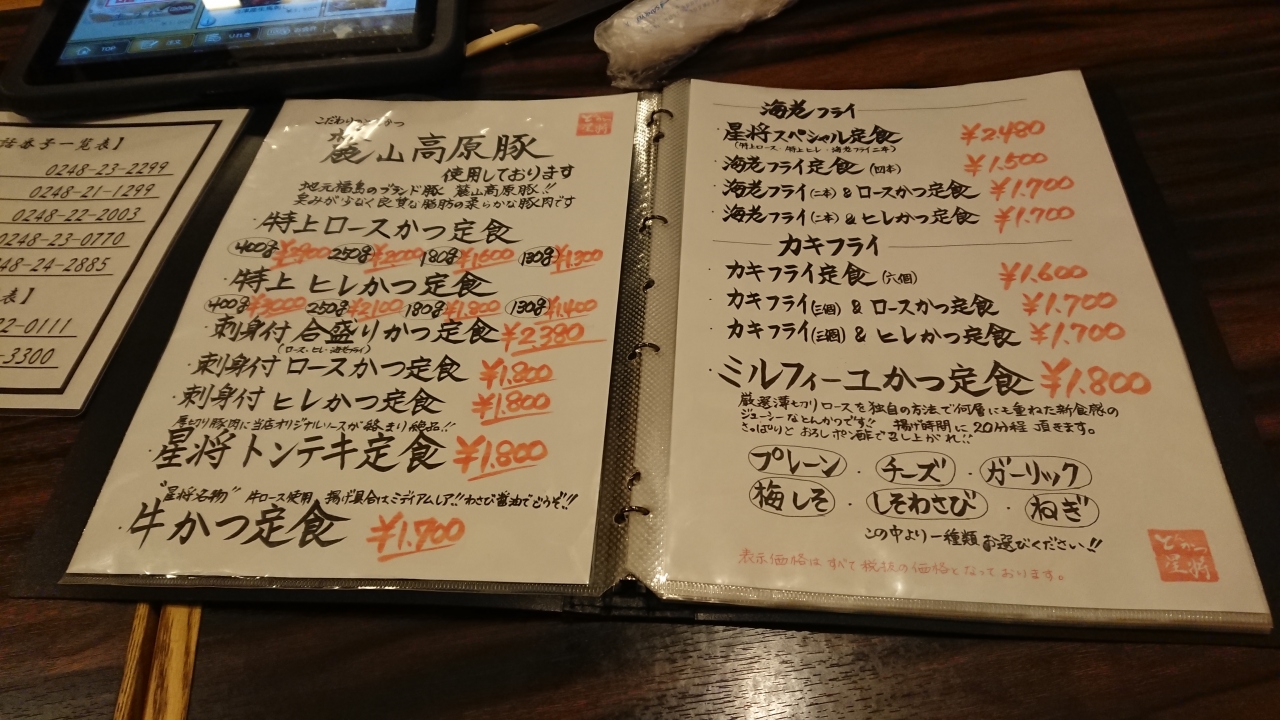 TOP
注文
話番号一覧表】
0248-23-2299
0248-21-1299
0248-22-2003
0248-23-0770
48-24-2885
表】
22-0111
-3300
こだわりのとんかつ
麓山高原豚
使用しております
地元福島のブランド豚 麓山高原豚!!
臭みが少なく良質な脂肪の柔らかな豚肉です
・特上ロースかつ定食
400g ¥2900 250g ¥2000 180g ¥1,600 130g ¥1,300
・特上 ヒレかつ定食
400g ¥3000 250g ¥2,100 180g ¥1,800 130g ¥1,400
・刺身付 合盛りかつ定食 ¥2380
(ロース・ヒレ・海老フライ)
・刺身付 ロースかつ定食 ¥1.800
・刺身付 ヒレかつ定食 ¥1.800
厚切り豚肉に当店オリジナルソースが絡まり絶品!!
・星将トンテキ定食 ¥1.800
"星将名物" 牛ロース使用 揚げ具合はミディアムレア!!わさび醤油でどうぞ!!
・牛かつ定食 ¥1.700
海老フライ
・星将スペシャル定食 ¥2.480
(特上ロース・特上ヒレ・海老フライ二本)
・海老フライ定食(四本) ¥1.500
・海老フライ(二本)&ロースかつ定食 ¥1.700
・海老フライ(二本)&ヒレかつ定食 ¥1.700
カキフライ
・カキフライ定食(六個) ¥1.600
・カキフライ(三個)&ロースかつ定食 ¥1.700
・カキフライ(三個)&ヒレかつ定食 ¥1.700
・ミルフィーユかつ定食 ¥1.800
厳選薄切りロースを独自の方法で何層にも重ねた新食感の
ジューシーなとんかつです!! 揚げ時間に20分程頂きます。
さっぱりと おろしポン酢で召し上がれ!!
プレーン・チーズ・ガーリック
梅しそ・しそわさび・ねぎ
この中より一種類お選びください!!
表示価格はすべて税抜の価格となっております。
とんかつ
星将